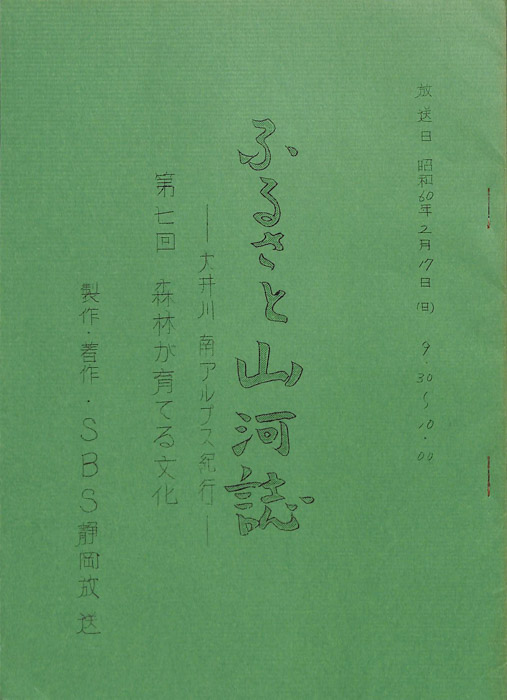 放送日 昭和60年2月17日(日) 9.30～10.00
ふるさと山河誌
―大井川 南アルプス紀行―
第七回 森林が育てる文化
製作・著作・SBS静岡放送